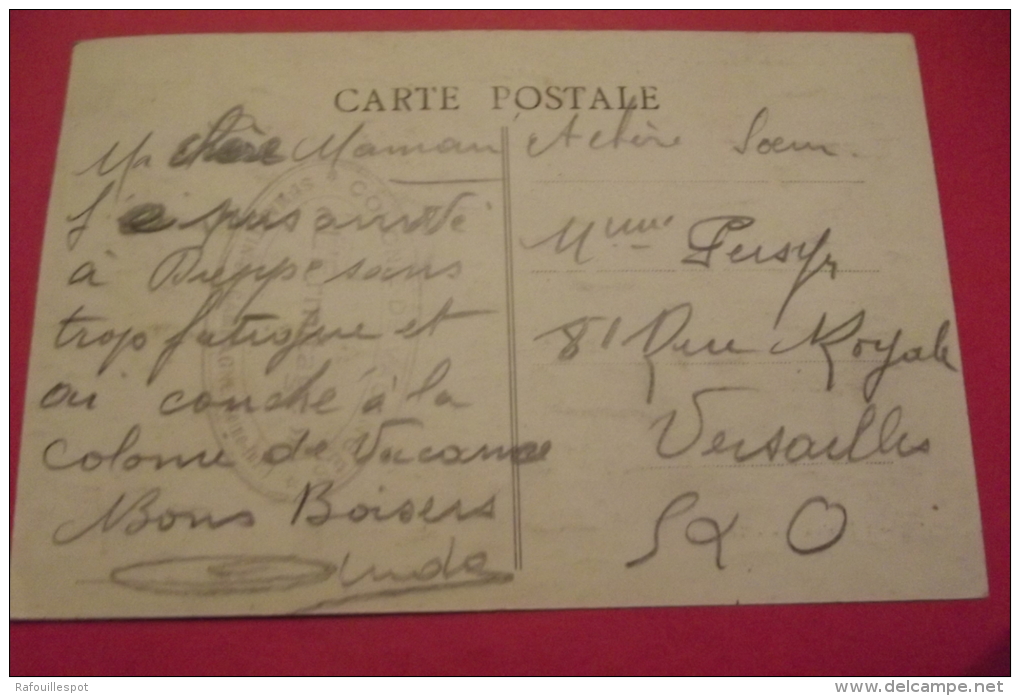 CARTE POSTALE
Ma chère Maman
et chère Sœur.
suis arrivé
à Dieppe sans
trop fatigue et
ai couché à la
colonie de Vacance
Bons Baisers
Mme Persyn
81 Rue Royale
Versailles
S & O
Rafouillespot
delcampe.net